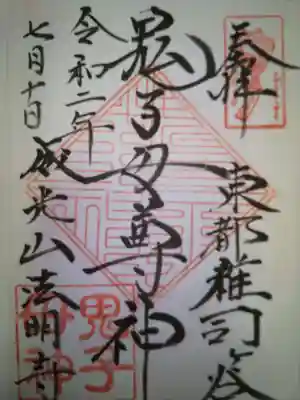 奉拝
東都雑司ヶ谷
鬼子母尊神
令和二年
七月十日
威光山法明寺